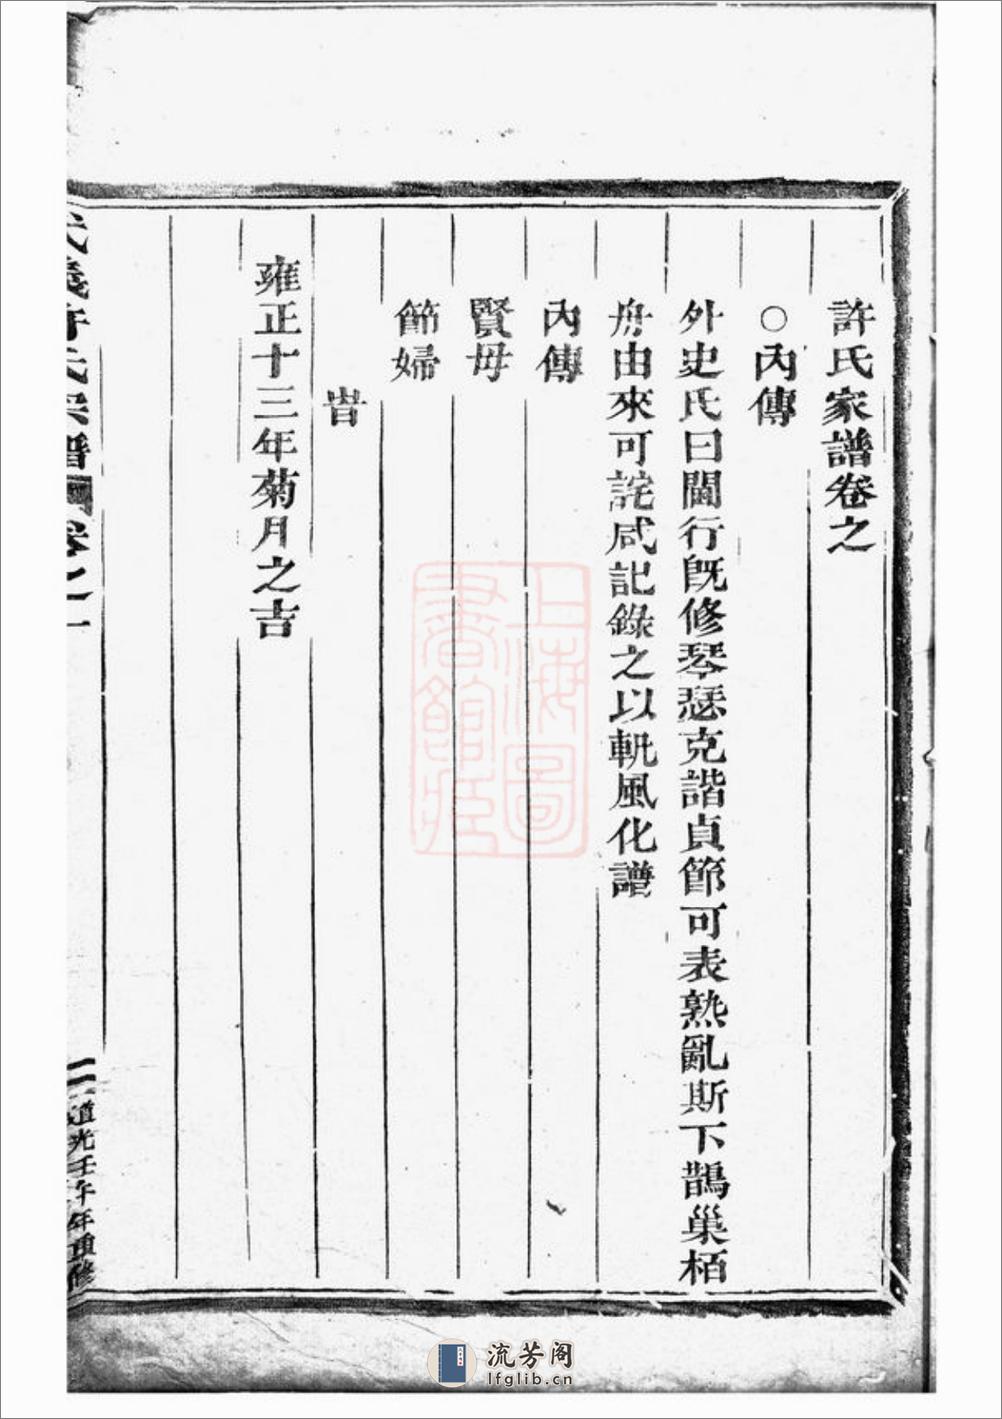 許氏家譜卷之
○內傳
外史氏曰閫行旣修琴瑟克諧貞節可表孰亂斯下鵲巢栢
舟由來可詫咸記錄之以軏風化譜
內傳
賢毋
節婦
旹
雍正十三年菊月之吉
武義許氏宗譜 卷之一
二 道光壬午年重修
上海圖書館藏
流芳阁
lfglib.cn